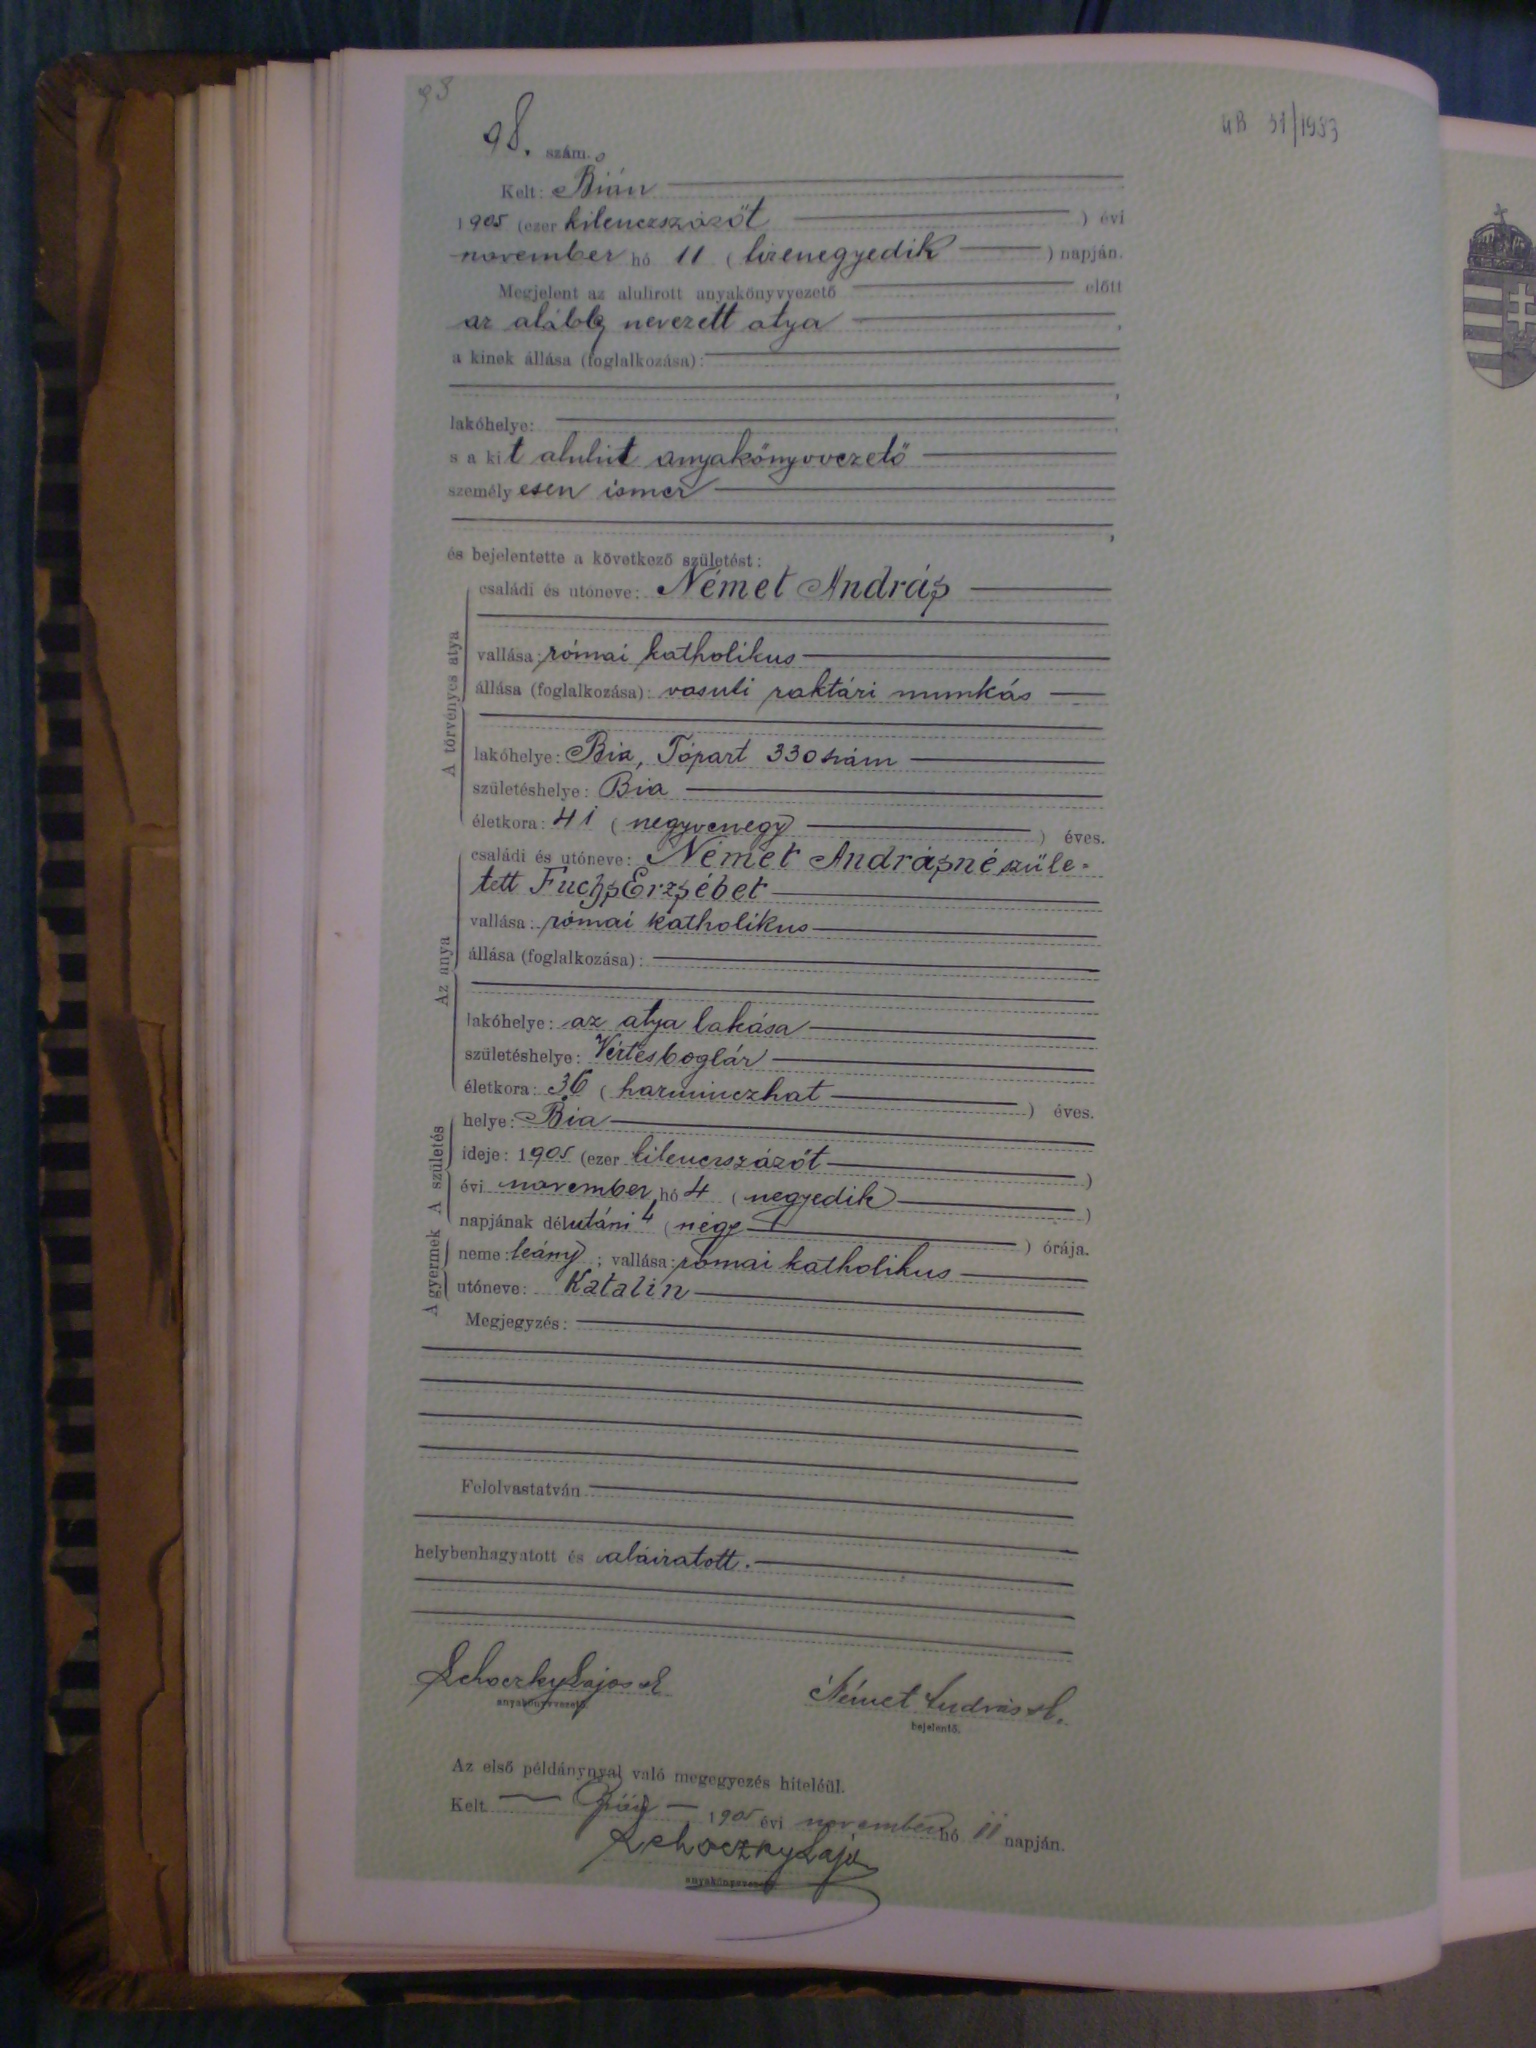 98. szám.
Kelt: Bián
1905 (ezer kilenczszázöt) évi
november hó 11 (tizenegyedik) napján.
Megjelent az alulirott anyakönyvvezető előtt
az alább nevezett atya,
a kinek állása (foglalkozása):
lakóhelye:
s a kit alulirt anyakönyvvezető
személyesen ismer,
és bejelentette a következő születést:
A törvényes atya
családi és utóneve: Német András
vallása: római katholikus
állása (foglalkozása): vasuti raktári munkás
lakóhelye: Bia, Tópart 330 szám
születéshelye: Bia
életkora: 41 (negyvenegy) éves.
Az anya
családi és utóneve: Német Andrásné szüle-
tett Fuchs Erzsébet
vallása: római katholikus
állása (foglalkozása):
lakóhelye: az atya lakása
születéshelye: Vértesboglár
életkora: 36 (harminczhat) éves.
A születés
helye: Bia
ideje: 1905 (ezer kilenczszázöt)
évi november hó 4 (negyedik)
napjának délutáni 4 (négy) órája.
A gyermek
neme: leány; vallása: római katholikus
utóneve: Katalin
Megjegyzés:
Felolvastatván
helybenhagyatott és aláiratott.
Lajos
anyakönyvvezető.
Német András
bejelentő.
Az első példánynyal való megegyezés hiteléül.
Kelt 1905 évi november hó 11 napján.
anyakönyvvezető.